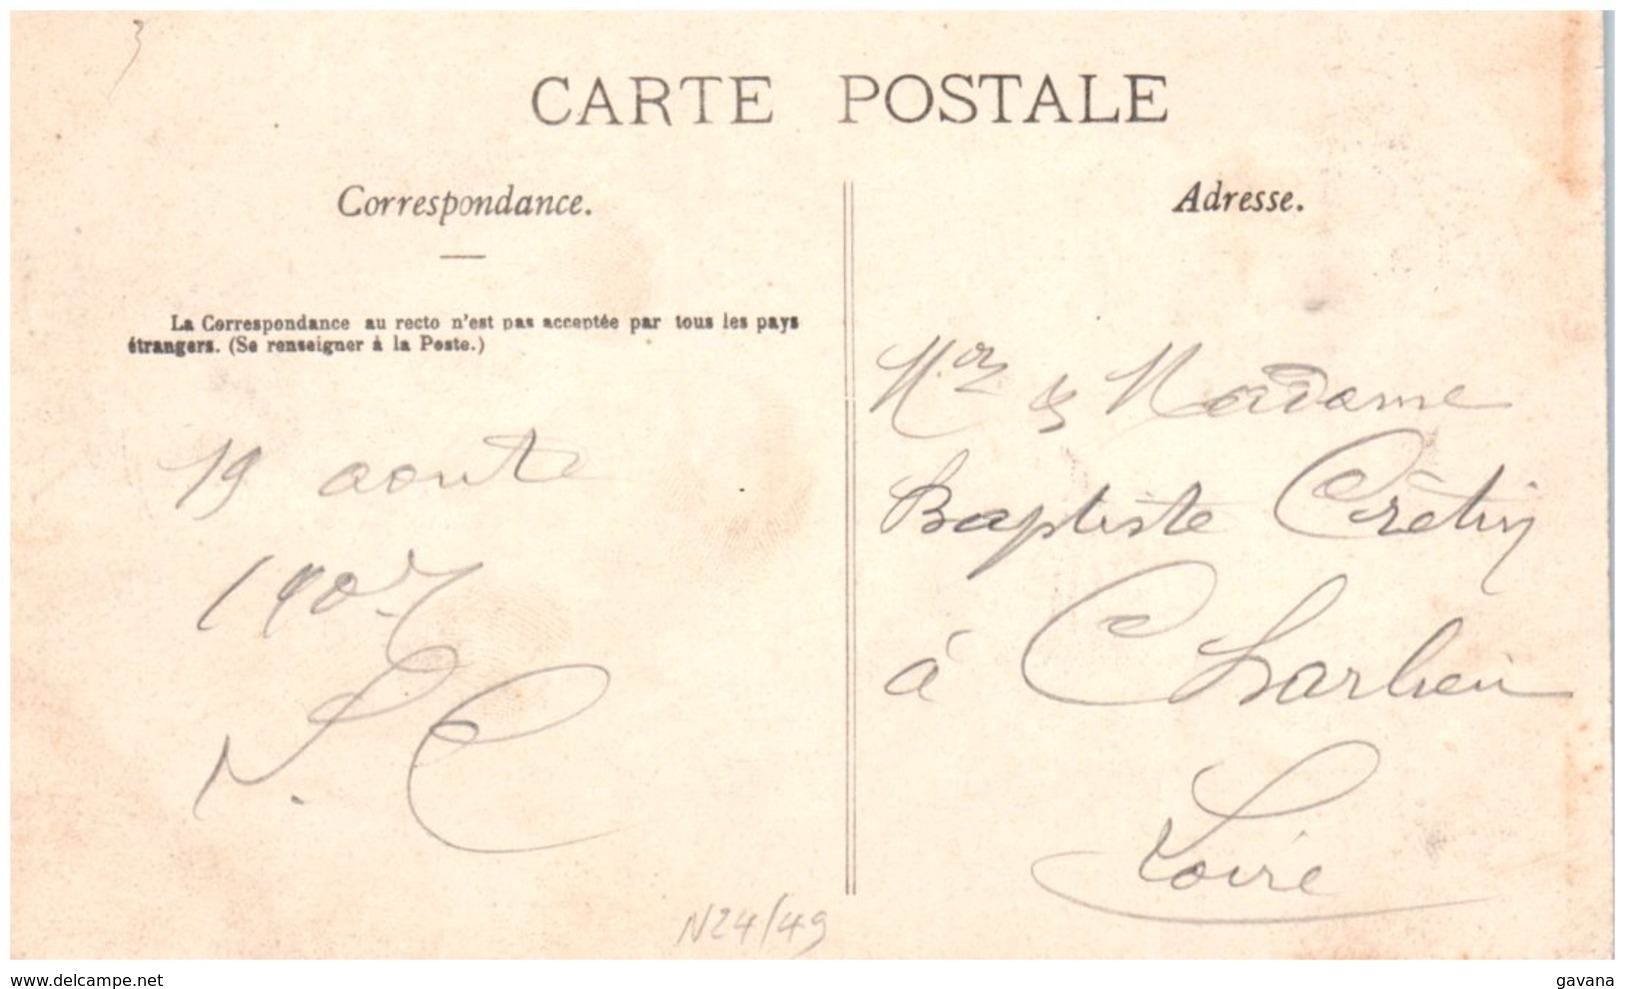 3
CARTE POSTALE
Correspondance.
La Correspondance au recto n'est pas acceptée par tous les pays
étrangers. (Se renseigner à la Poste.)
19 aoute
1907
C
N24/49
Adresse.
Mr & Madame
Baptiste Crétin
à Charlieu
Loire
www.delcampe.net
gavana